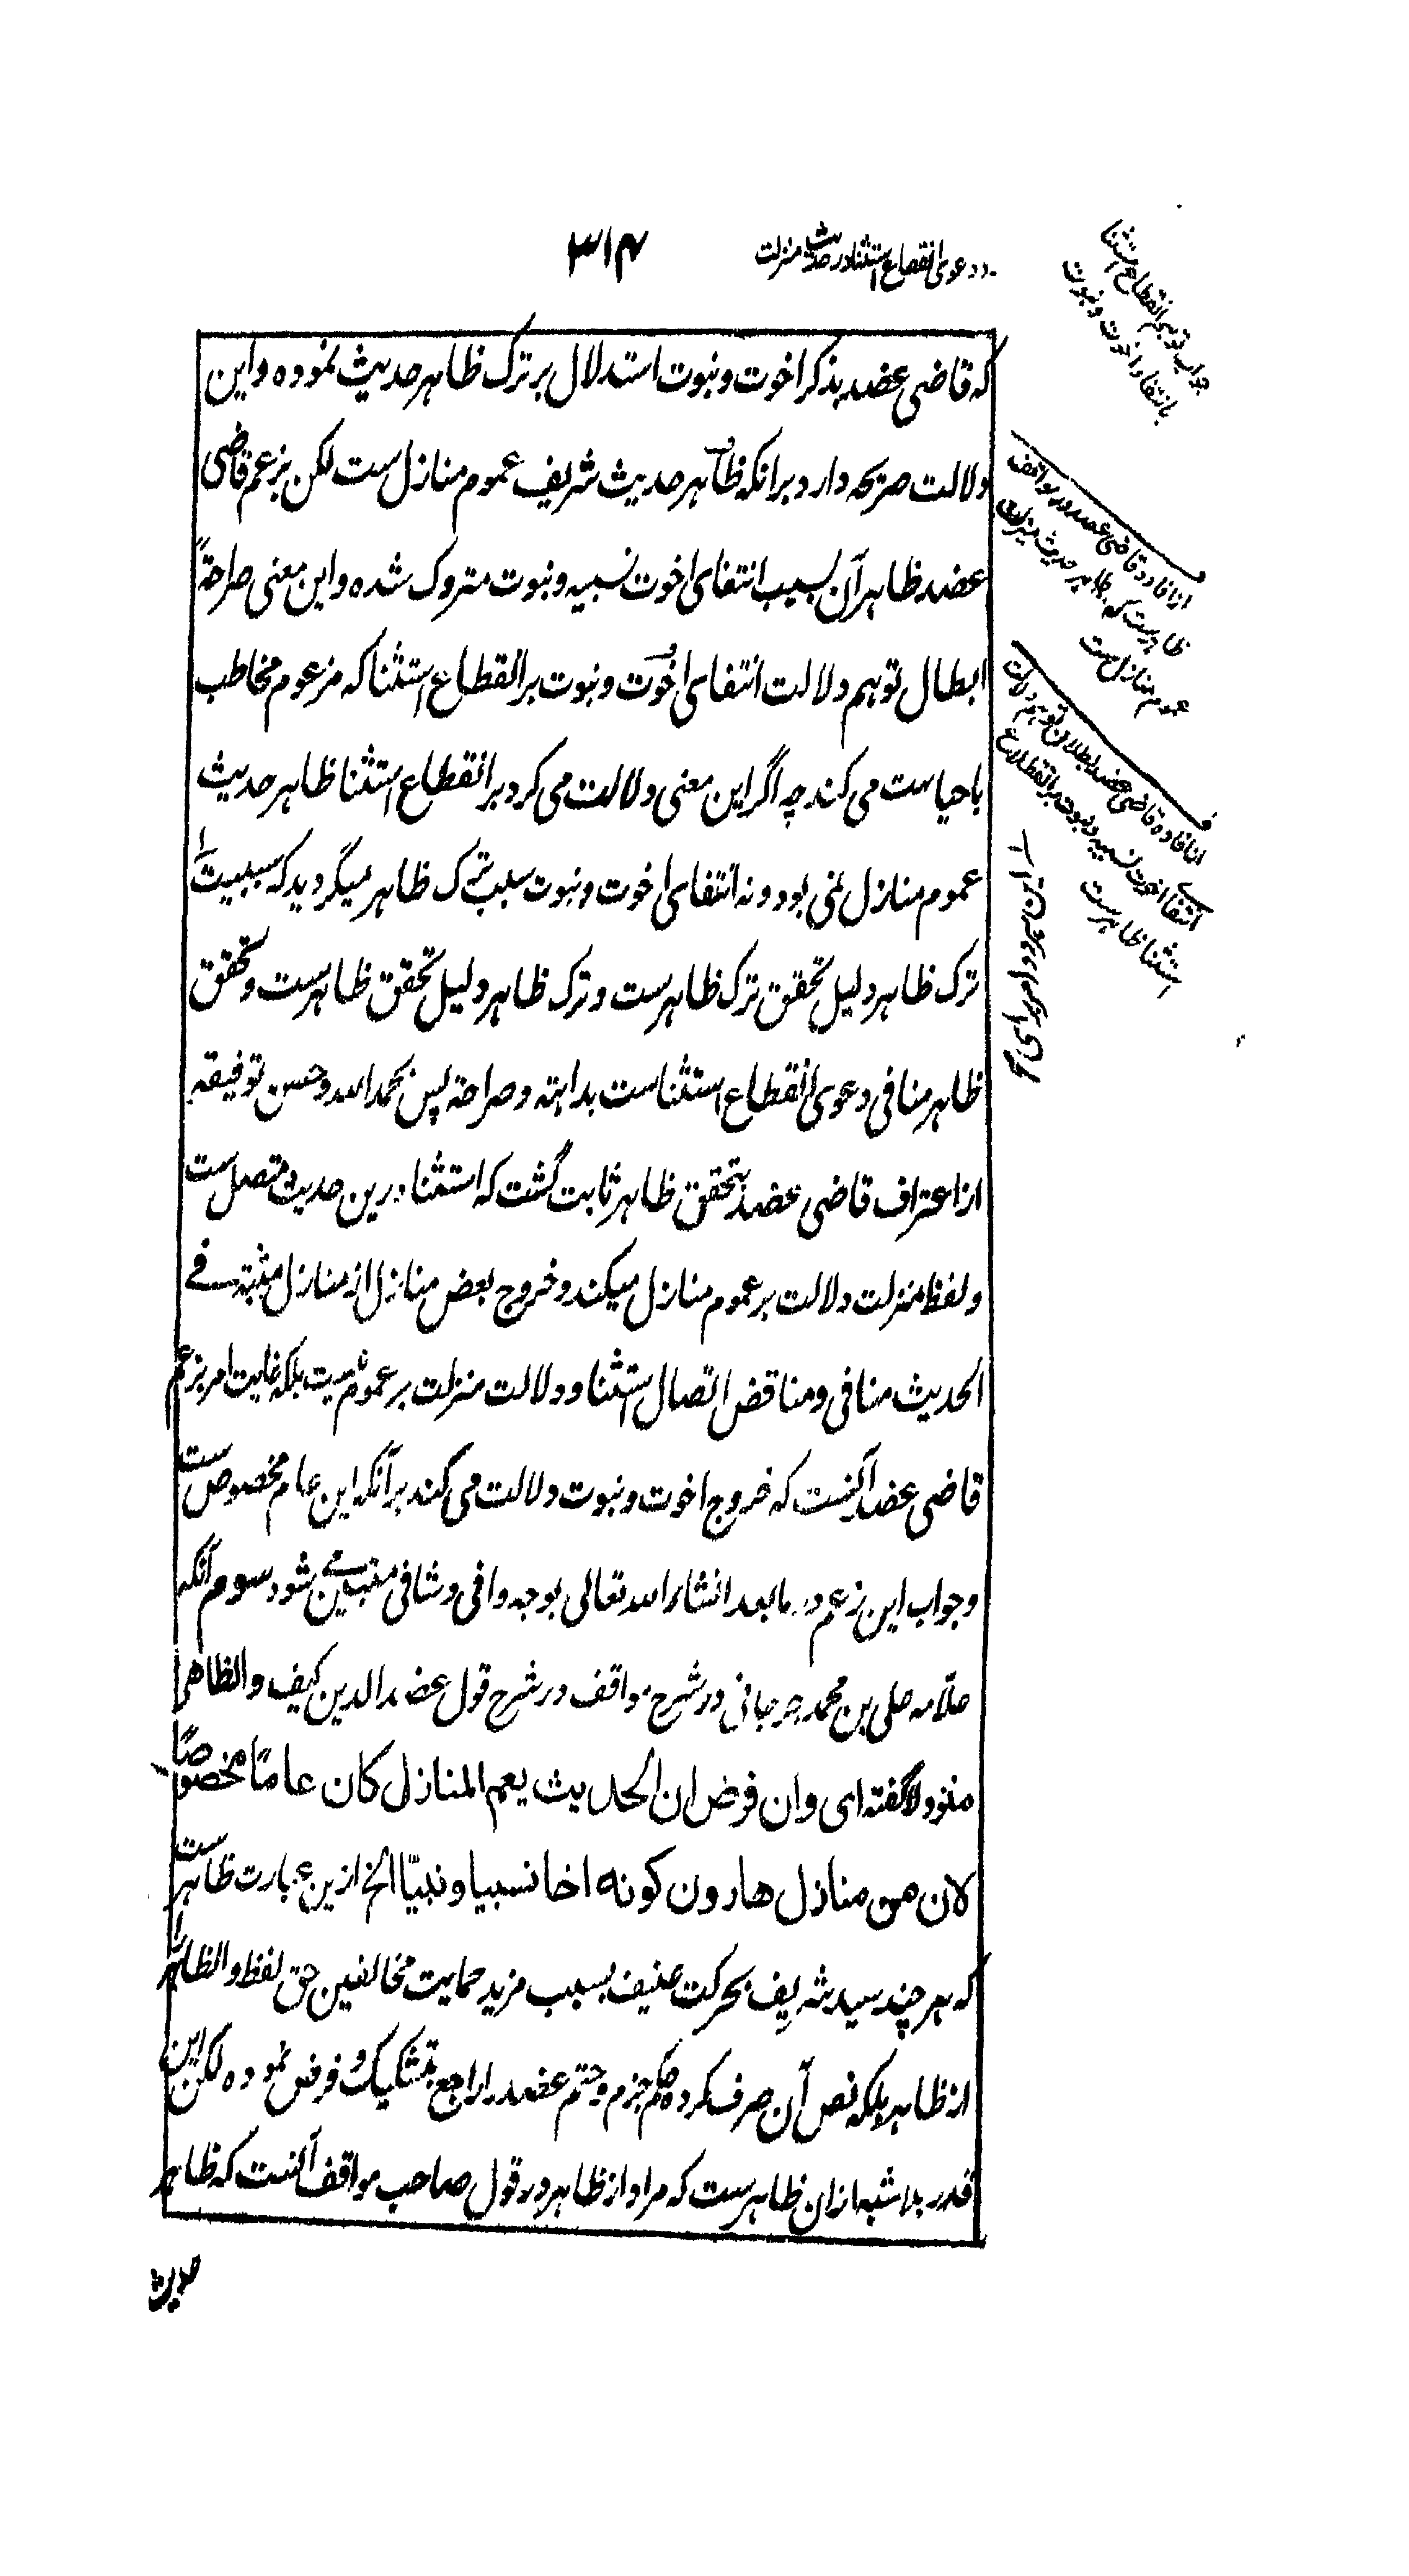 رد دعوی انقطاع استثنا در حدیث منزلت
۳۱۴
جواب توهم انقطاع استثنا
بانتفاء اخوت و نبوت
که قاضی عضد بذکر اخوت و نبوت استدلال بر ترک ظاهر حدیث نموده و این
دلالت صریحه دارد برانکه ظاهر حدیث شریف عموم منازل ست لکن بزعم قاضی
عضد ظاهر آن بسبب انتفای اخوت نسبیه و نبوت متروک شده و این معنی صراحةً
ابطال توهم دلالت انتفای اخوت و نبوت بر انقطاع استثنا که مزعوم مخاطب
باحیاست می کند چه اگر این معنی دلالت می کرد بر انقطاع استثنا ظاهر حدیث
عموم منازل نمی بود و نه انتفای اخوت و نبوت سبب ترک ظاهر میگردید که سببیت
ترک ظاهر دلیل تحقق ترک ظاهرست و ترک ظاهر دلیل تحقق ظاهرست و تحقق
ظاهر منافی دعوی انقطاع استثناست بداهته و صراحة پس بحمد الله و حسن توفیقه
از اعتراف قاضی عضد بتحقق ظاهر ثابت گشت که استثنا درین حدیث متصل ست
و لفظ منزلت دلالت بر عموم منازل میکند و خروج بعض منازل از منازل مثبته فے
الحدیث منافی و مناقض اتصال استثنا و دلالت منزلت بر عموم نیست بلکه غایت امر بزعم
قاضی عضد آنست که خروج اخوت و نبوت دلالت می کند برآنکه این عام مخصوص ست
و جواب این زعم در مابعد انشاء الله تعالی بوجه وافی و شافی مبین می شود سوم آنکه
علامه علی بن محمد جرجانی در شرح مواقف در شرح قول عضد الدین کیف والظاهر
متروک گفته ای وان فرض ان الحدیث یعم المنازل کان عامًا مخصوصًا
لان من منازل هارون کونه اخا نسبیا و نبیّا الخ ازین عبارت ظاهر ست
که هر چند سید شریف بحرکت عنیف بسبب مزید حمایت مخالفین حق لفظ والظاهر را
از ظاهر بلکه نص آن صرف کرده حکم جزم و حتم عضد را راجع بتشکیک و فرض نموده لکن این
قدر بلا شبه ازان ظاهرست که مراد از ظاهر در قول صاحب مواقف آنست که ظاهر
از افاده قاضی عضد در مواقف
ظاهرست که ظاهر حدیث منزلت
عموم منازل ست
از افاده قاضی عضد بطلان توهم دلالت
انتفای اخوت نسبیه و نبوت بر انقطاع
استثنا ظاهرست
حدیث